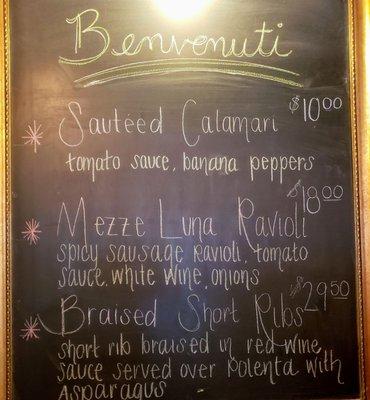 Benvenuti
Sautéed Calamari $10.00
tomato sauce, banana peppers
Mezze Luna Ravioli $18.00
spicy sausage ravioli, tomato
sauce, white wine, onions
Braised Short Ribs $29.50
short rib braised in red wine
sauce served over polenta with
asparagus